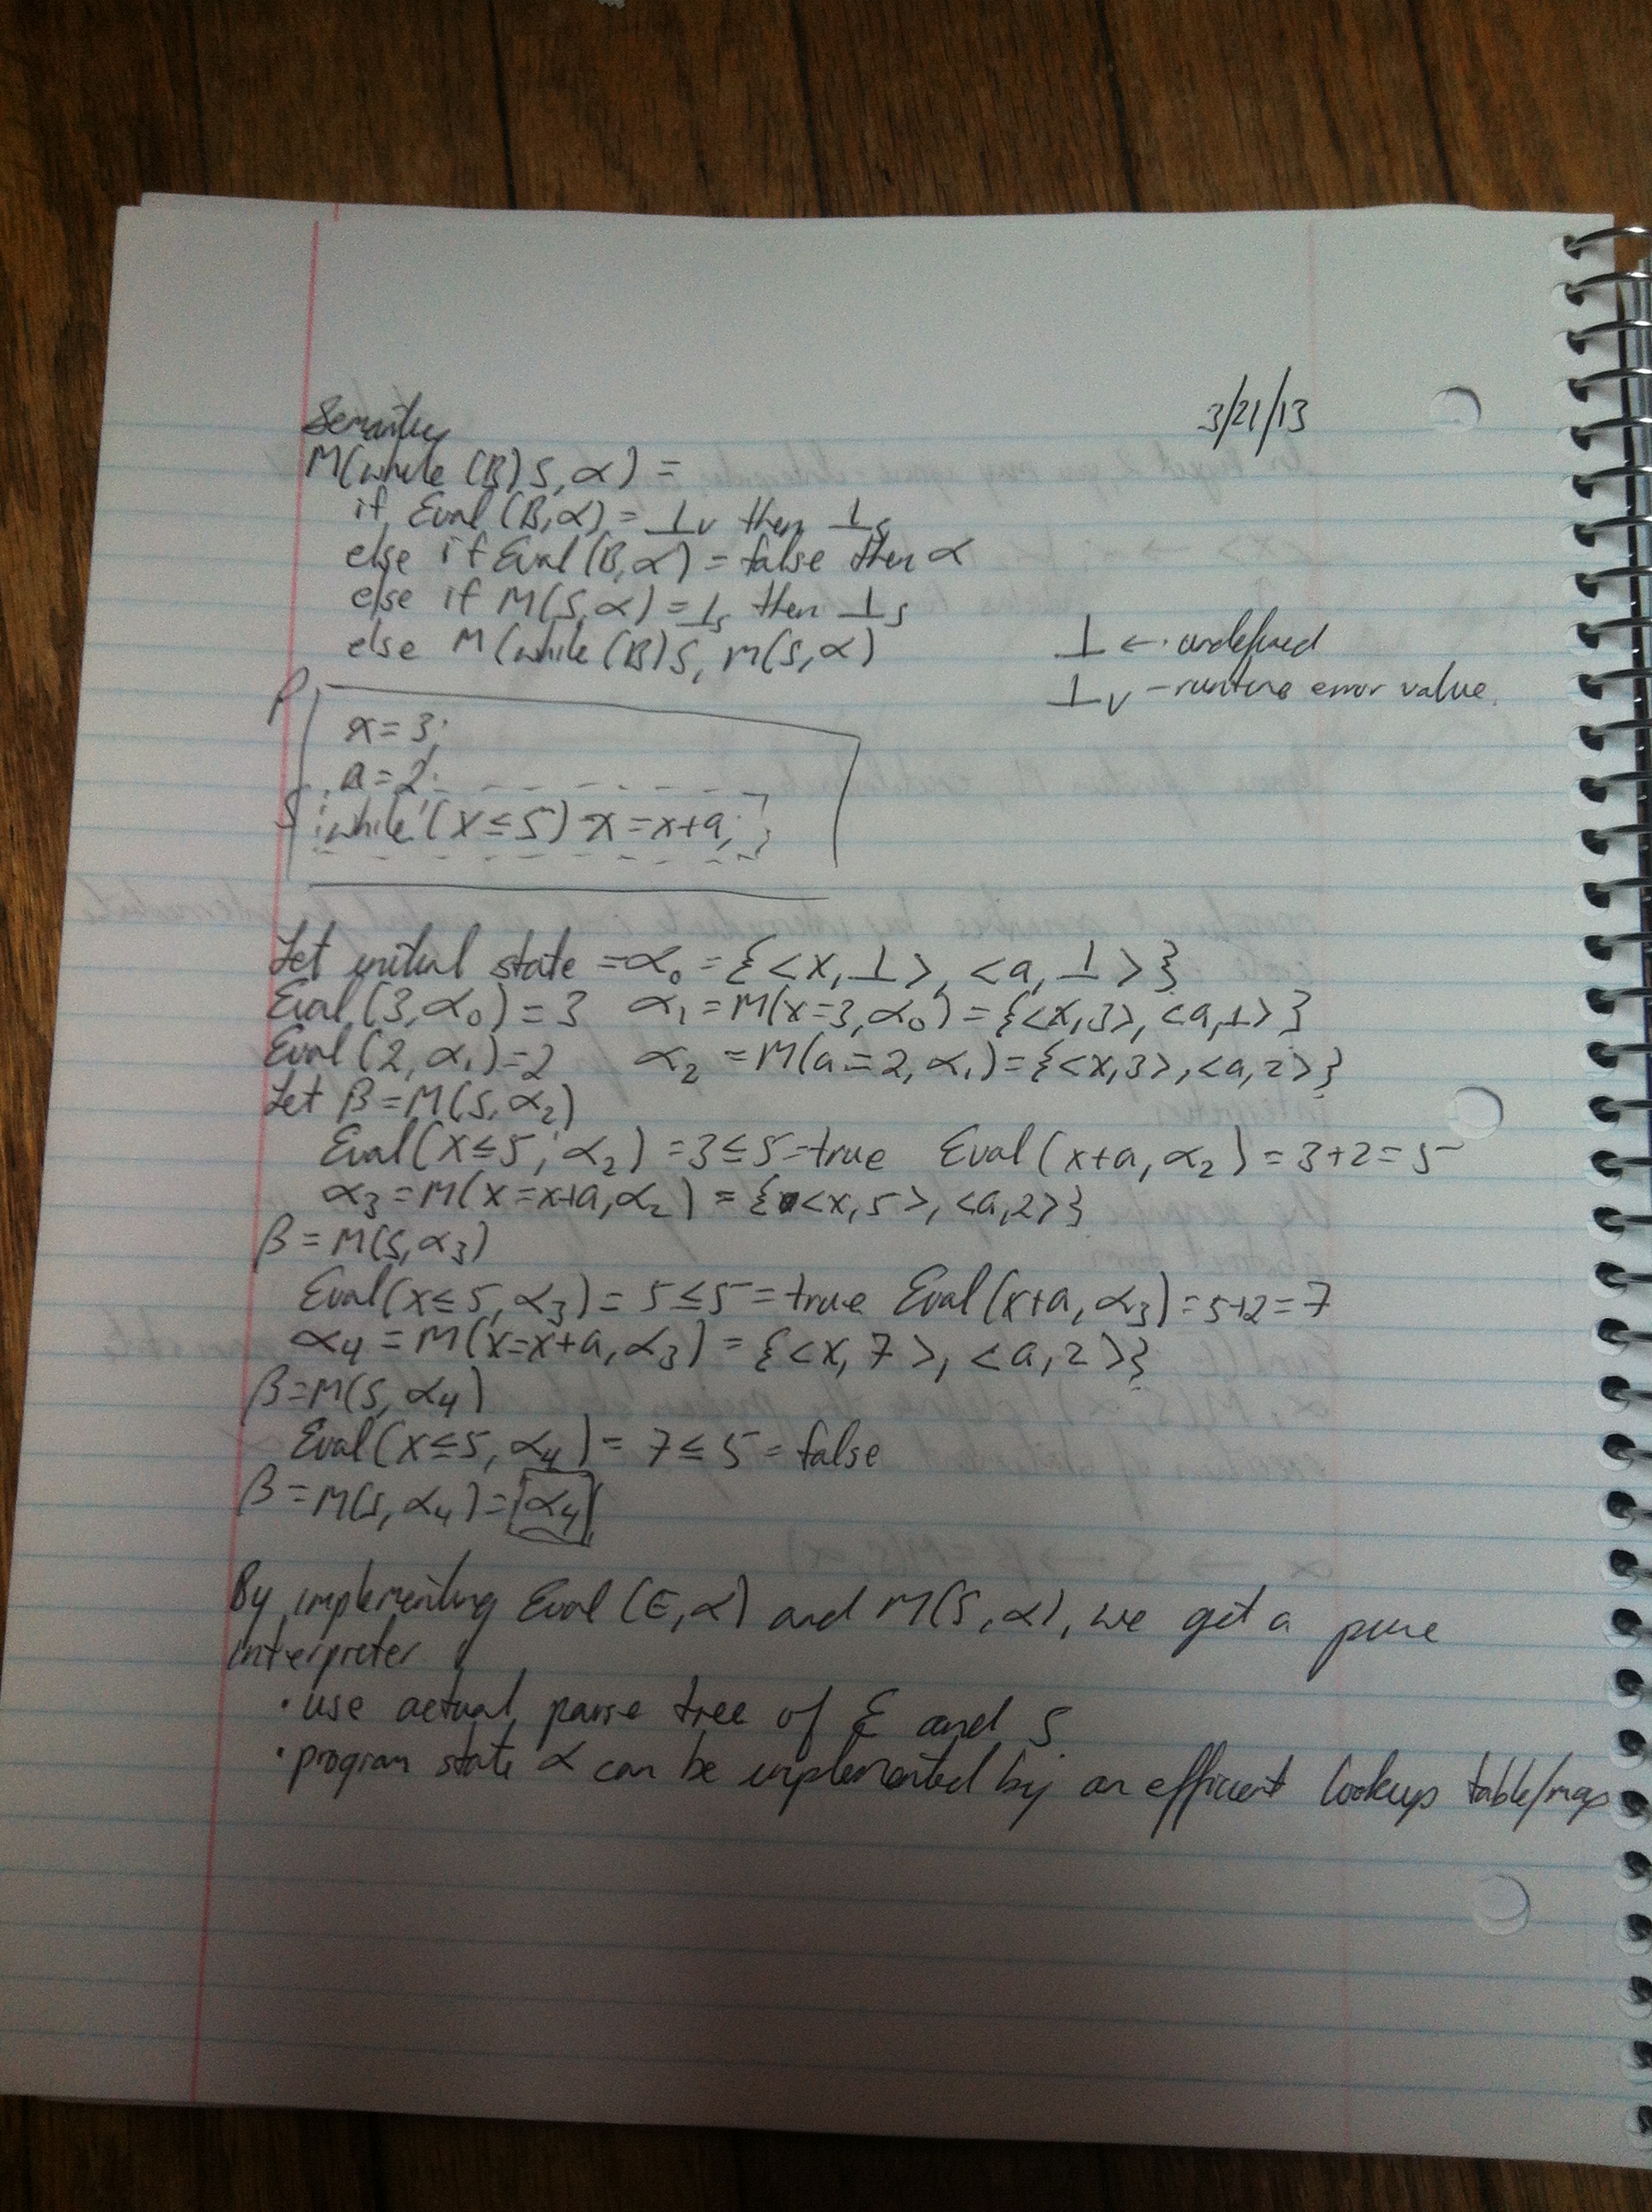 3/21/13
Semantics
M(while (B) S, α) =
if Eval (B, α) = ⊥v then ⊥s
else if Eval (B, α) = false then α
else if M(S, α) = ⊥s then ⊥s
else M(while (B) S, M(S, α)
⊥ ← undefined
⊥v - runtime error value
P
x = 3;
a = 2;
S while (x ≤ 5) x = x+a;
Let initial state = α₀ = {<x, ⊥>, <a, ⊥>}
Eval (3, α₀) = 3 α₁ = M(x=3, α₀) = {<x,3>, <a,⊥>}
Eval (2, α₁) = 2 α₂ = M(a=2, α₁) = {<x,3>, <a,2>}
Let β = M(S, α₂)
Eval(x ≤ 5, α₂) = 3 ≤ 5 = true Eval (x+a, α₂) = 3+2 = 5
α₃ = M(x=x+a, α₂) = {<x,5>, <a,2>}
β = M(S, α₃)
Eval(x ≤ 5, α₃) = 5 ≤ 5 = true Eval(x+a, α₃) = 5+2 = 7
α₄ = M(x=x+a, α₃) = {<x, 7>, <a, 2>}
β = M(S, α₄)
Eval(x ≤ 5, α₄) = 7 ≤ 5 = false
β = M(S, α₄) = α₄
By implementing Eval (E, α) and M(S, α), we get a pure
interpreter
· use actual parse tree of E and S
· program state α can be implemented by an efficient lookup table/map